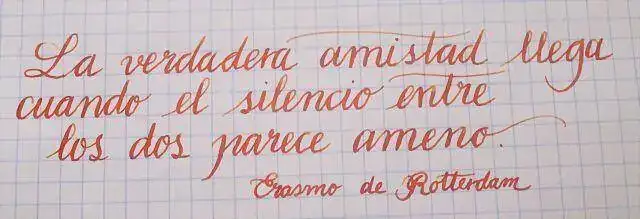 La verdadera amistad llega
cuando el silencio entre
los dos parece ameno.
Erasmo de Rotterdam